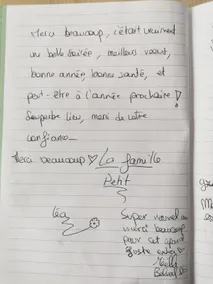 Merci beaucoup, c'était vraiment
un belle soirée, meilleurs vœux,
bonne année, bonne santé, et
peut-être à l'année prochaine !
Superbe lieu, merci de votre
confiance
Merci beaucoup ♡ La famille
Petit
Léa
Super nouvel an
merci beaucoup
pour cet
juste